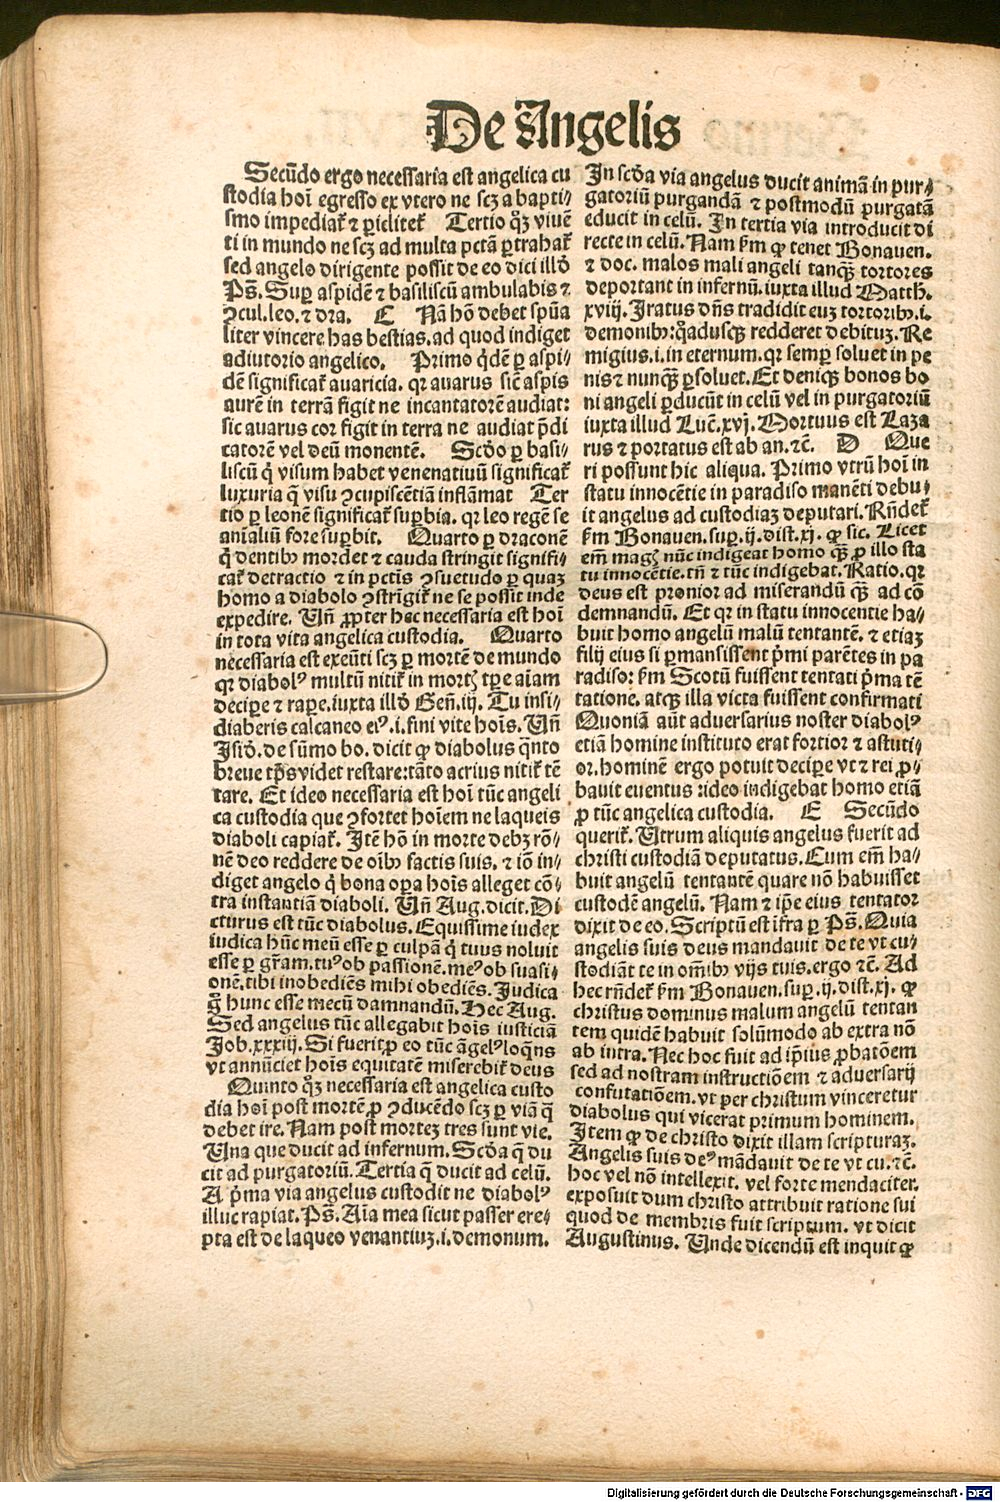 De Angelis
Secūdo ergo necessaria est angelica cu
stodia hoı̄ egresso ex vtero ne scꝫ a bapti⸗
smo impediat᷑ ⁊ ꝑiclitet᷑ Tertio qꝫ viuē
ti in mundo ne scꝫ ad multa pctā ꝑtrahat᷑
sed angelo dirigente possit de eo dici illđ
Ps̄. Suꝑ aspidē ⁊ basiliscū ambulabis ⁊
ꝯcul. leo. ⁊ dra. C Nā hō debet spūa
liter vincere has bestias. ad quod indiget
adiutorio angelico. Primo q̇dē ꝑ aspi⸗
dē significat᷑ auaricia. qꝛ auarus sic̄ aspis
aurē in terrā figit ne incantatorē audiat:
sic auarus cor figit in terra ne audiat p̄di
catorē vel deū monentē. Scđo ꝑ basi⸗
liscū q̇ visum habet venenatiuū significat᷑
luxuria q̄ visu ꝯcupiscētiā inflāmat Ter
tio ꝑ leonē significat᷑ suꝑbia. qꝛ leo regē se
aı̄aliū fore suꝑbit. Quarto ꝑ draconē
q̇ dentibꝰ mordet ⁊ cauda stringit signifi⸗
cat᷑ detractio ⁊ in pctı̄s ꝯsuetudo ꝑ quaꝫ
homo a diabolo ꝯstrı̄git᷑ ne se possit inde
expedire. Vn̄ ꝓpter hec necessaria est hoı̄
in tota vita angelica custodia. Quarto
necessaria est exeūti scꝫ ꝑ mortē de mundo
qꝛ diabolꝰ multū nitit᷑ in mortꝭ tꝑe aı̄am
deciꝑe ⁊ raꝑe. iuxta illđ Gen̄. iij. Tu insi⸗
diaberis calcaneo eiꝰ. i. fini vite hoı̄s. Vn̄
Isiđ. de sūmo bo. dicit ꝙ diabolus q̇nto
breue tp̄s videt restare: tāto acrius nitit᷑ tē
tare. Et ideo necessaria est hoı̄ tūc angeli
ca custodia que ꝯfortet hoı̄em ne laqueis
diaboli capiat᷑. Itē hō in morte debꝫ rō⸗
nē deo reddere de oı̄bꝰ factis suis. ⁊ iō in⸗
diget angelo q̇ bona oꝑa hoı̄s alleget cō⸗
tra instantiā diaboli. Vn̄ Aug. dicit. Di
cturus est tūc diabolus. Equissime iudex
iudica hūc meū esse ꝑ culpā q̇ tuus noluit
esse ꝑ gr̄am. tuꝰ ob passionē. meꝰ ob suasi⸗
onē. tibi inobediēs mihi obediēs. Iudica
g̊ hunc esse mecū damnandū. Hec Aug.
Sed angelus tūc allegabit hoı̄s iusticiā
Job. xxxiij. Si fuerit ꝓ eo tūc āgelꝰ loq̄ns
vt annūciet hoı̄s equitatē miserebit᷑ deus
Quinto qꝫ necessaria est angelica custo
dia hoı̄ post mortē ꝓ ꝯducēdo scꝫ ꝑ viā q̄
debet ire. Nam post morteꝫ tres sunt vie.
Una que ducit ad infernum. Scđa q̄ du
cit ad purgatoriū. Tertia q̄ ducit ad celū.
A p̄ma via angelus custodit ne diabolꝰ
illuc rapiat. Ps̄. Aı̄a mea sicut passer ere⸗
pta est de laqueo venantiuꝫ. i. demonum.
In scđa via angelus ducit animā in pur⸗
gatoriū purgandā ⁊ postmodū purgatā
educit in celū. In tertia via introducit di
recte in celū. Nam ẜm ꝙ tenet Bonauen.
⁊ doc. malos mali angeli tanqꝫ tortores
deportant in infernū. iuxta illud Matth.
xviij. Iratus dn̄s tradidit euꝫ tortoribꝰ. i.
demonibꝰ: q̊adusqꝫ redderet debituꝫ. Re
migius. i. in eternum. qꝛ semꝑ soluet in pe
nis ⁊ nunqꝫ ꝑsoluet. Et deniqꝫ bonos bo
ni angeli ꝑducūt in celū vel in purgatoriū
iuxta illud Luc̄. xvj. Mortuus est Laza
rus ⁊ portatus est ab an. ⁊c̄. D Que
ri possunt hic aliqua. Primo vtrū hoı̄ in
statu innocētie in paradiso manēti debu⸗
it angelus ad custodiaꝫ deputari. Rn̄det᷑
ẜm Bonauen. suꝑ. ij. dist. xj. ꝙ sic. Licet
em̄ magꝭ nūc indigeat homo qꝫ ꝓ illo sta
tu innocētie. tn̄ ⁊ tūc indigebat. Ratio. qꝛ
deus est pronior ad miserandū qꝫ ad cō
demnandū. Et qꝛ in statu innocentie ha⸗
buit homo angelū malū tentantē. ⁊ etiaꝫ
filij eius si ꝑmansissent p̄mi parētes in pa
radiso: ẜm Scotū fuissent tentati p̄ma tē
tatione. atqꝫ illa victa fuissent confirmati
Quoniā aūt aduersarius noster diabolꝰ
etiā homine instituto erat fortior ⁊ astuti⸗
or. hominē ergo potuit deciꝑe vt ⁊ rei ꝓ⸗
bauit euentus: ideo indigebat homo etiā
ꝓ tūc angelica custodia. E Secūdo
querit᷑. Utrum aliquis angelus fuerit ad
christi custodiā deputatus. Cum em̄ ha⸗
buit angelū tentantē quare nō habuisset
custodē angelū. Nam ⁊ ip̄e eius tentator
dixit de eo. Scriptū est ı̄fra ꝑ Ps̄. Quia
angelis suis deus mandauit de te vt cu⸗
stodiāt te in om̄ibꝰ vijs tuis. ergo ⁊c̄. Ad
hec rn̄det᷑ ẜm Bonauen. suꝑ. ij. dist. xj. ꝙ
christus dominus malum angelū tentan
tem quidē habuit solūmodo ab extra nō
ab intra. Nec hoc fuit ad ip̄ius ꝓbatōem
sed ad nostram instructiōem ⁊ aduersarij
confutatiōem. vt per christum vinceretur
diabolus qui vicerat primum hominem.
Item ꝙ de christo dixit illam scripturaꝫ.
Angelis suis deꝰ mādauit de te vt cu. ⁊c̄.
hoc vel nō intellexit. vel forte mendaciter.
exposuit dum christo attribuit ratione sui
quod de membris fuit scriptum. vt dicit
Augustinus. Unde dicendū est inquit ꝙ
Digitalisierung gefördert durch die Deutsche Forschungsgemeinschaft - DFG